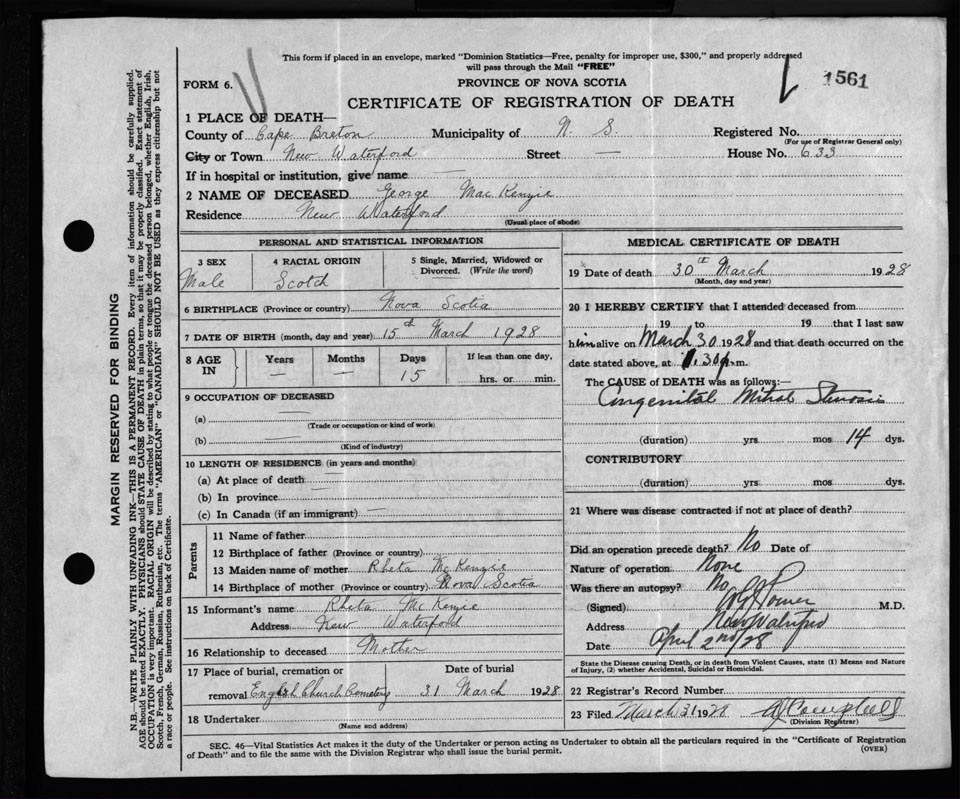 This form if placed in an envelope, marked "Dominion Statistics—Free, penalty for improper use, $300," and properly addressed
will pass through the Mail "FREE"
FORM 6.
PROVINCE OF NOVA SCOTIA
1561
CERTIFICATE OF REGISTRATION OF DEATH
1 PLACE OF DEATH—
County of Cape Breton Municipality of N. S. Registered No.
(For use of Registrar General only)
City or Town New Waterford Street — House No. 633
If in hospital or institution, give name —
2 NAME OF DECEASED George Mac Kenzie
Residence New Waterford
(Usual place of abode)
PERSONAL AND STATISTICAL INFORMATION
3 SEX 4 RACIAL ORIGIN 5 Single, Married, Widowed or Divorced. (Write the word)
Male Scotch
6 BIRTHPLACE (Province or country) Nova Scotia
7 DATE OF BIRTH (month, day and year) 15th March 1928
8 AGE IN Years Months Days If less than one day,
— — 15 hrs. or min.
9 OCCUPATION OF DECEASED
(a) —
(Trade or occupation or kind of work)
(b) —
(Kind of industry)
10 LENGTH OF RESIDENCE (in years and months)
(a) At place of death —
(b) In province —
(c) In Canada (if an immigrant) —
Parents
11 Name of father
12 Birthplace of father (Province or country)
13 Maiden name of mother Rheta McKenzie
14 Birthplace of mother (Province or country) Nova Scotia
15 Informant's name Rheta McKenzie
Address New Waterford
16 Relationship to deceased Mother
17 Place of burial, cremation or Date of burial
removal English Church Cemetery 31 March 1928
18 Undertaker
(Name and address)
MEDICAL CERTIFICATE OF DEATH
19 Date of death 30th March 1928
(Month, day and year)
20 I HEREBY CERTIFY that I attended deceased from
19 to 19 that I last saw
him alive on March 30 1928 and that death occurred on the
date stated above, at 1.30 p.m.
The CAUSE of DEATH was as follows:—
Congenital Mitral Stenosis
(duration) yrs mos 14 dys.
CONTRIBUTORY
(duration) yrs mos dys.
21 Where was disease contracted if not at place of death?
Did an operation precede death? No Date of
Nature of operation None
Was there an autopsy? No
(Signed) M.D.
Address New Waterford
Date April 2nd/28
State the Disease causing Death, or in death from Violent Causes, state (1) Means and Nature of Injury, (2) whether Accidental, Suicidal or Homicidal.
22 Registrar's Record Number
23 Filed March 31 1928 Campbell
(Division Registrar)
SEC. 46—Vital Statistics Act makes it the duty of the Undertaker or person acting as Undertaker to obtain all the particulars required in the "Certificate of Registration
of Death" and to file the same with the Division Registrar who shall issue the burial permit. (OVER)
MARGIN RESERVED FOR BINDING
N.B.—WRITE PLAINLY WITH UNFADING INK—THIS IS A PERMANENT RECORD. Every item of information should be carefully supplied.
AGE should be stated EXACTLY. PHYSICIANS should STATE CAUSE OF DEATH in plain terms, so that it may be properly classified. Exact statement of
OCCUPATION is very important. RACIAL ORIGIN will be described by stating to what people or tongue the deceased person belonged, whether English, Irish,
Scotch, French, German, Russian, Ruthenian, etc. The terms "AMERICAN" or "CANADIAN" SHOULD NOT BE USED as they express citizenship but not
a race or people. See instructions on back of Certificate.